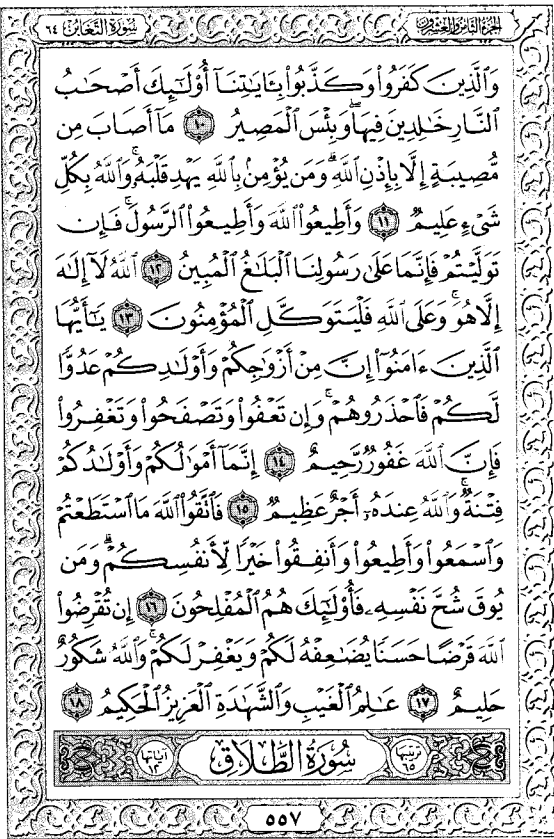 الجزء الثامن والعشرون
سورة التغابن ٦٤
وَالَّذِينَ كَفَرُوا وَكَذَّبُوا بِـَٔايَٰتِنَآ أُو۟لَٰٓئِكَ أَصْحَٰبُ
ٱلنَّارِ خَٰلِدِينَ فِيهَا ۖ وَبِئْسَ ٱلْمَصِيرُ ١٠ مَآ أَصَابَ مِن
مُّصِيبَةٍ إِلَّا بِإِذْنِ ٱللَّهِ ۗ وَمَن يُؤْمِنۢ بِٱللَّهِ يَهْدِ قَلْبَهُۥ ۚ وَٱللَّهُ بِكُلِّ
شَىْءٍ عَلِيمٌ ١١ وَأَطِيعُوا۟ ٱللَّهَ وَأَطِيعُوا۟ ٱلرَّسُولَ ۚ فَإِن
تَوَلَّيْتُمْ فَإِنَّمَا عَلَىٰ رَسُولِنَا ٱلْبَلَٰغُ ٱلْمُبِينُ ١٢ ٱللَّهُ لَآ إِلَٰهَ
إِلَّا هُوَ ۚ وَعَلَى ٱللَّهِ فَلْيَتَوَكَّلِ ٱلْمُؤْمِنُونَ ١٣ يَٰٓأَيُّهَا
ٱلَّذِينَ ءَامَنُوٓا۟ إِنَّ مِنْ أَزْوَٰجِكُمْ وَأَوْلَٰدِكُمْ عَدُوًّا
لَّكُمْ فَٱحْذَرُوهُمْ ۚ وَإِن تَعْفُوا۟ وَتَصْفَحُوا۟ وَتَغْفِرُوا۟
فَإِنَّ ٱللَّهَ غَفُورٌ رَّحِيمٌ ١٤ إِنَّمَآ أَمْوَٰلُكُمْ وَأَوْلَٰدُكُمْ
فِتْنَةٌ ۚ وَٱللَّهُ عِندَهُۥٓ أَجْرٌ عَظِيمٌ ١٥ فَٱتَّقُوا۟ ٱللَّهَ مَا ٱسْتَطَعْتُمْ
وَٱسْمَعُوا۟ وَأَطِيعُوا۟ وَأَنفِقُوا۟ خَيْرًا لِّأَنفُسِكُمْ ۗ وَمَن
يُوقَ شُحَّ نَفْسِهِۦ فَأُو۟لَٰٓئِكَ هُمُ ٱلْمُفْلِحُونَ ١٦ إِن تُقْرِضُوا۟
ٱللَّهَ قَرْضًا حَسَنًا يُضَٰعِفْهُ لَكُمْ وَيَغْفِرْ لَكُمْ ۚ وَٱللَّهُ شَكُورٌ
حَلِيمٌ ١٧ عَٰلِمُ ٱلْغَيْبِ وَٱلشَّهَٰدَةِ ٱلْعَزِيزُ ٱلْحَكِيمُ ١٨
ترتيبها ٦٥ سُورَةُ الطَّلَاقِ آياتها ١٢
٥٥٧